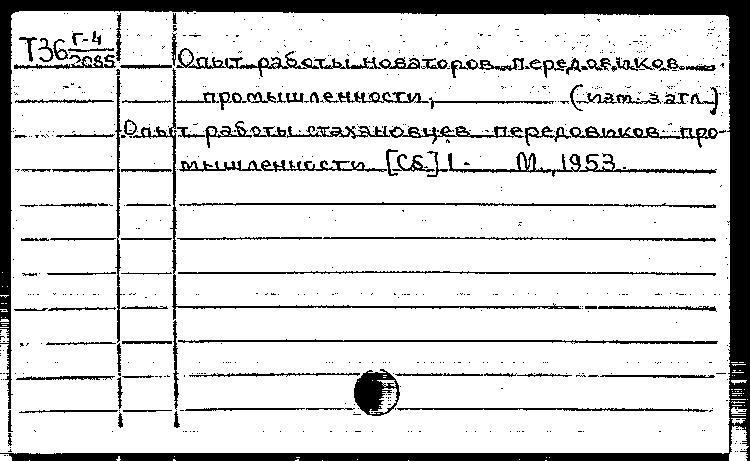 Т36 Г-4/2085 Опыт работы новаторов передовиков
промышленности, (изм. загл.)
Опыт работы стахановцев передовиков про-
мышленности [Сб.] 1. М., 1953.